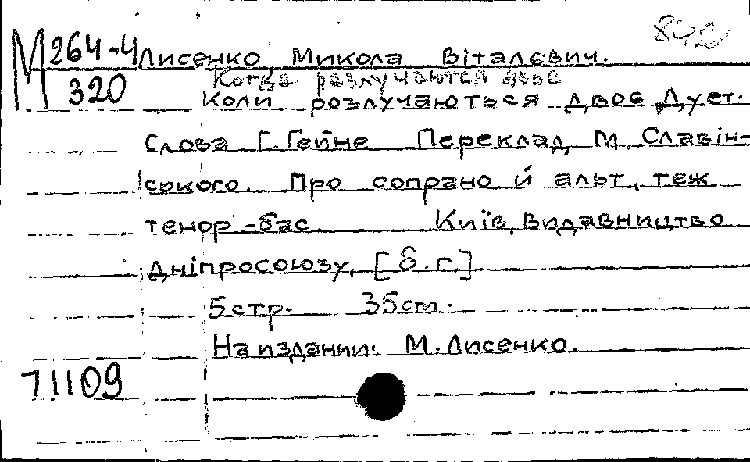 М 264-4
320
842
Лисенко, Микола Віталєвич.
Когда разлучаются двое
Коли розлучаються двоє. Дует.
Слова Г. Гейне Переклад М. Славін-
ського. Про сопрано й альт, теж
тенор-бас Київ, Видавництво
Дніпросоюзу, [б.г.]
5 стр. 35 cm.
На издании: М. Лисенко.
71109